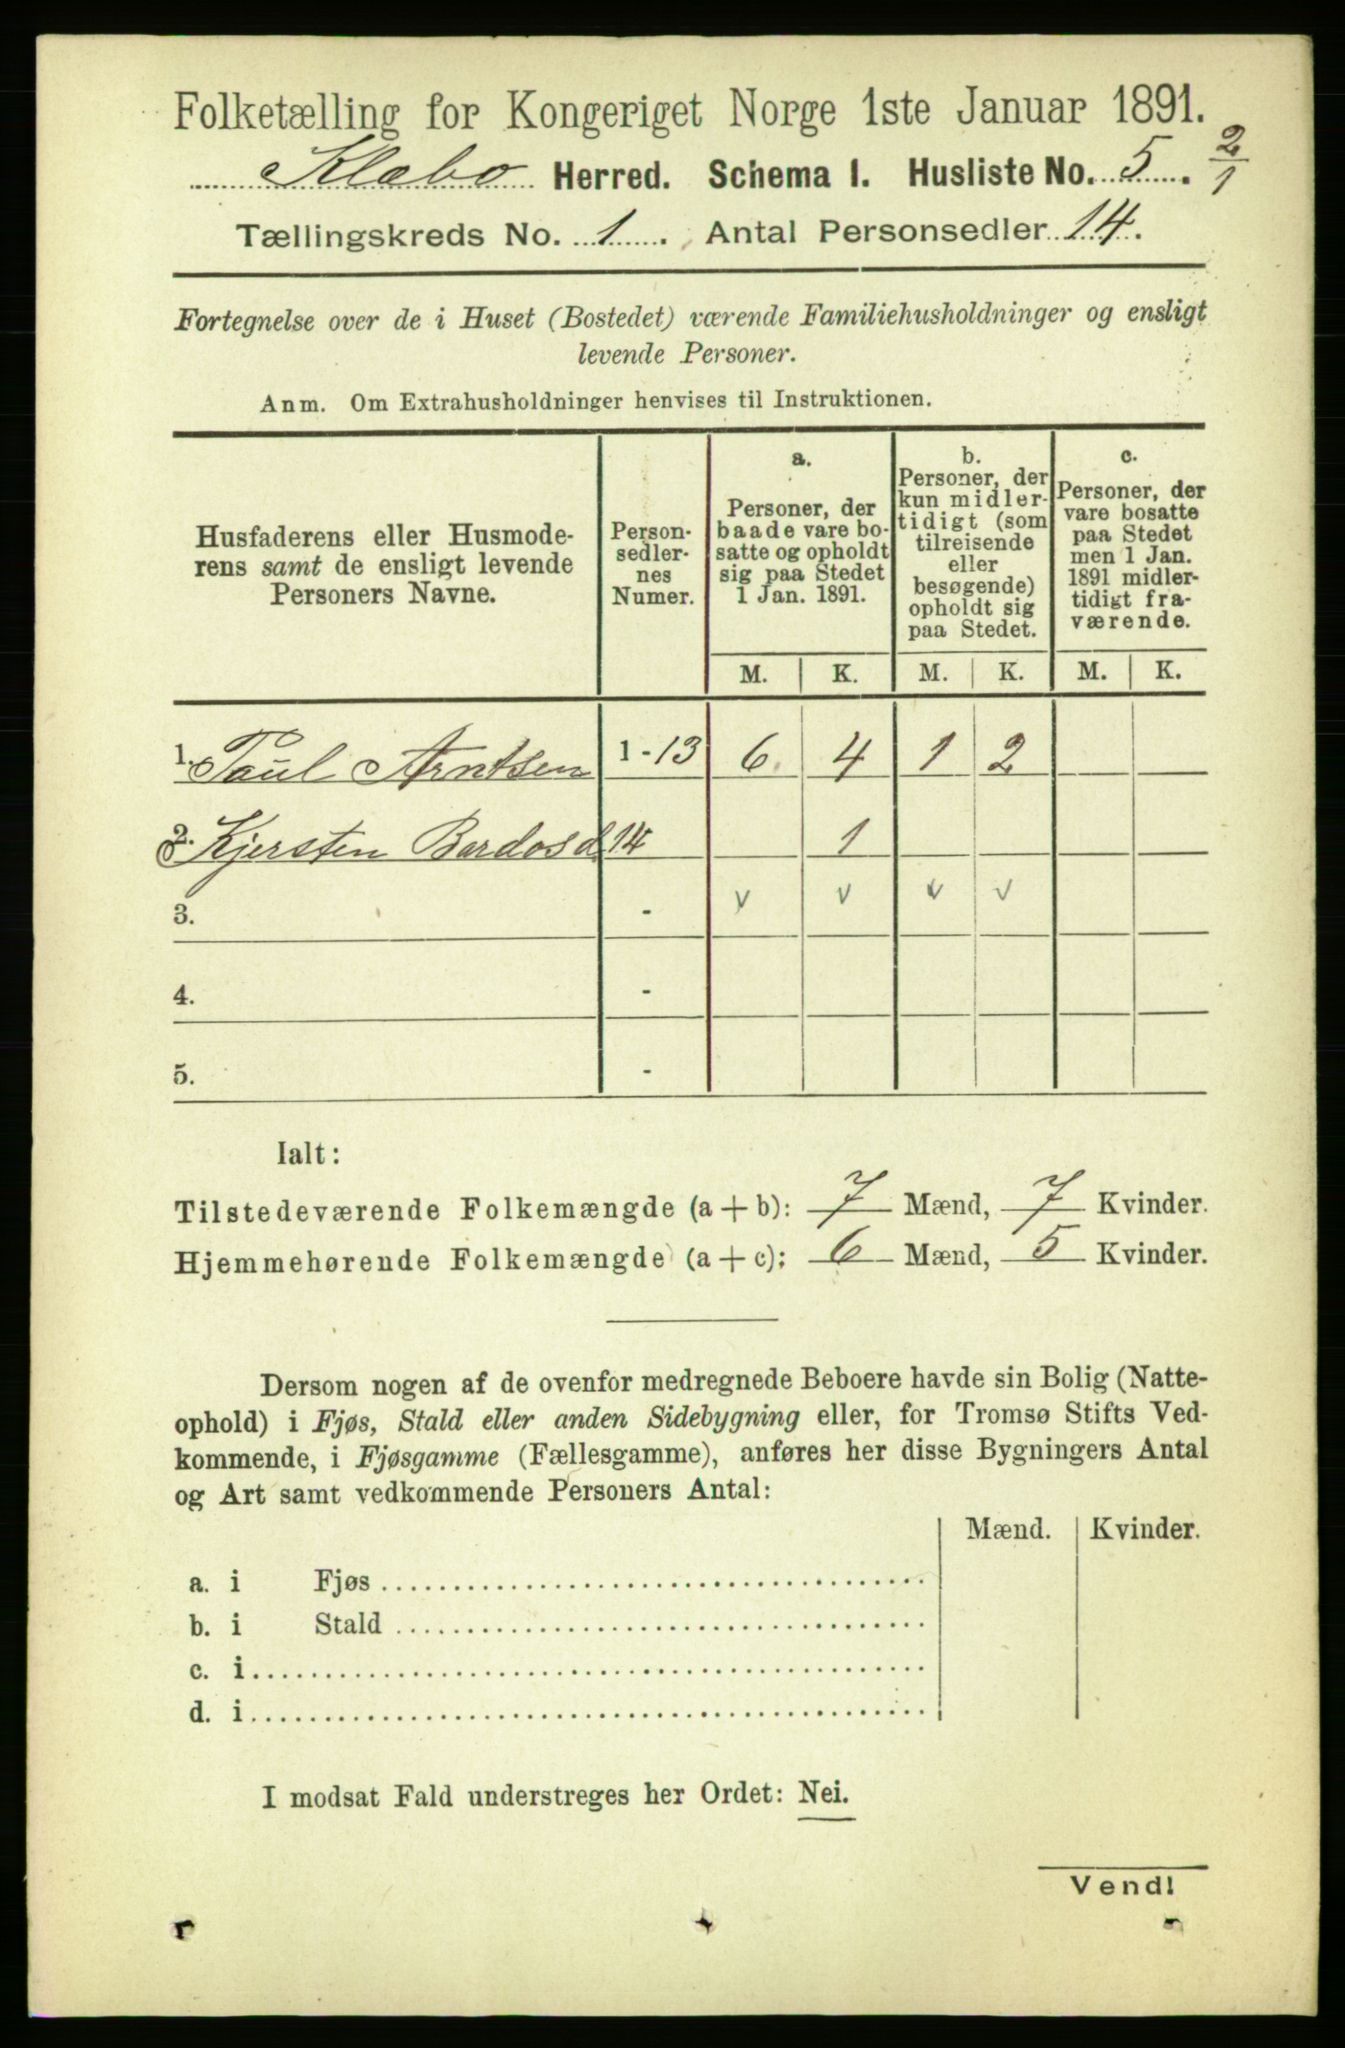 Folketælling for Kongeriget Norge 1ste Januar 1891.
Klæbo Herred. Schema I. Husliste No. 5. 2/1
Tællingskreds No. 1. Antal Personsedler 14.
Fortegnelse over de i Huset (Bostedet) værende Familiehusholdninger og ensligt
levende Personer.
Anm. Om Extrahusholdninger henvises til Instruktionen.
Husfaderens eller Husmode-
rens samt de ensligt levende
Personers Navne.
Person-
sedler-
nes
Numer.
a.
Personer, der
baade vare bo-
satte og opholdt
sig paa Stedet
1 Jan. 1891.
b.
Personer, der
kun midler-
tidigt (som
tilreisende
eller
besøgende)
opholdt sig
paa Stedet.
c.
Personer, der
vare bosatte
paa Stedet
men 1 Jan.
1891 midler-
tidigt fra-
værende.
M. K. M. K. M. K.
1. Paul Arntsen 1-13 6 4 1 2
2. Kjersten Bardosd. 14 1
3. - v v v v
4. -
5. -
Ialt:
Tilstedeværende Folkemængde (a+b): 7 Mænd, 7 Kvinder.
Hjemmehørende Folkemængde (a+c): 6 Mænd, 5 Kvinder.
Dersom nogen af de ovenfor medregnede Beboere havde sin Bolig (Natte-
ophold) i Fjøs, Stald eller anden Sidebygning eller, for Tromsø Stifts Ved-
kommende, i Fjøsgamme (Fællesgamme), anføres her disse Bygningers Antal
og Art samt vedkommende Personers Antal:
Mænd. Kvinder.
a. i Fjøs
b. i Stald
c. i
d. i
I modsat Fald understreges her Ordet: Nei.
Vend!